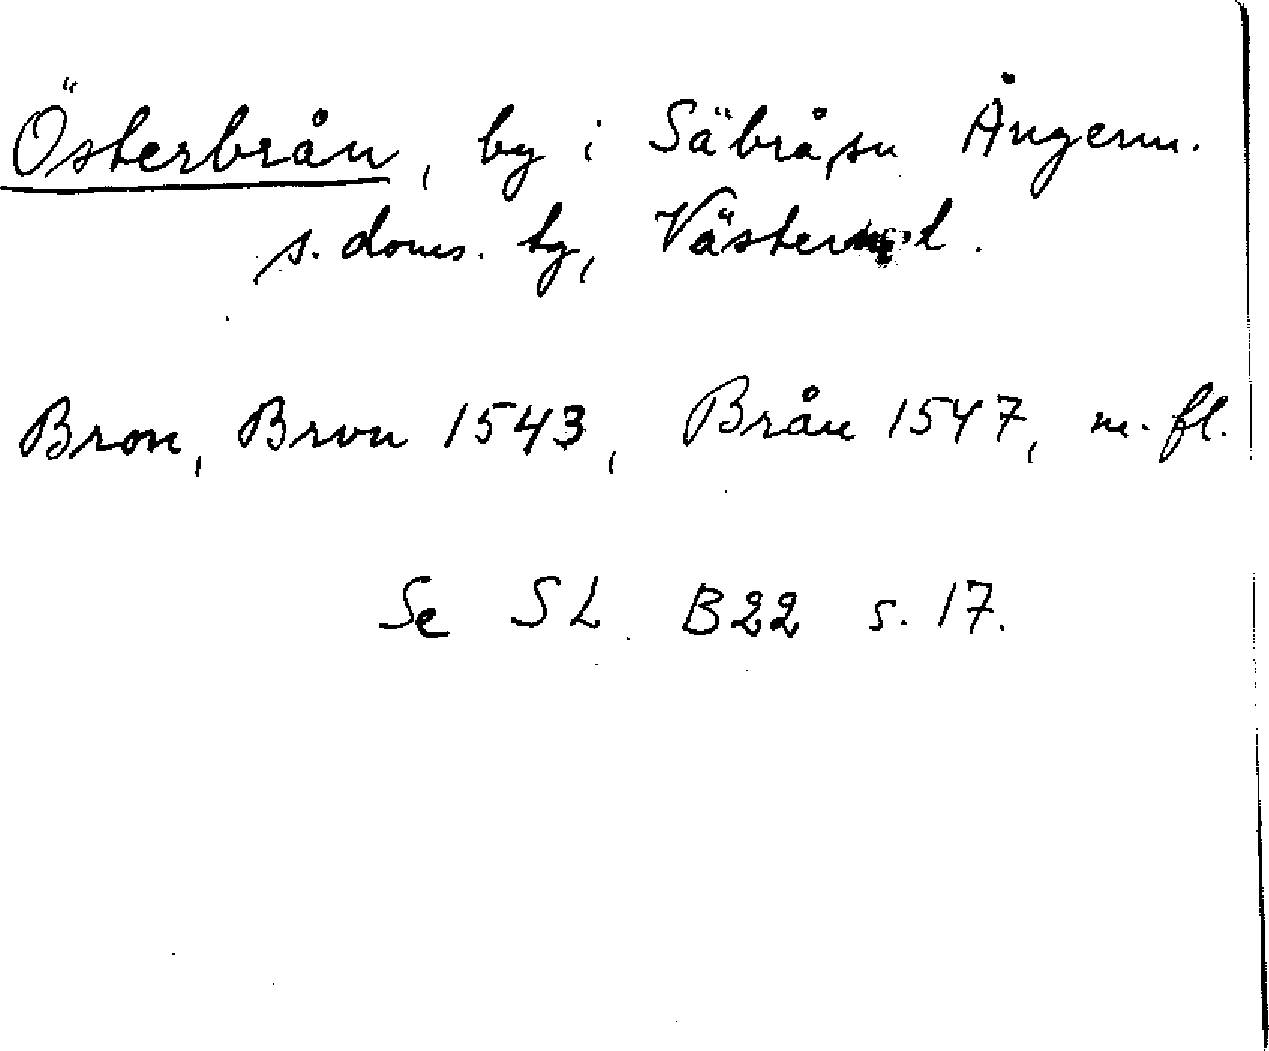 Österbrån, by i Säbrå sn Ångerm.
s. doms. tg, Västernorl.
Bron, Bron 1543, Brån 1547, m. fl.
Se SL B22 s. 17.